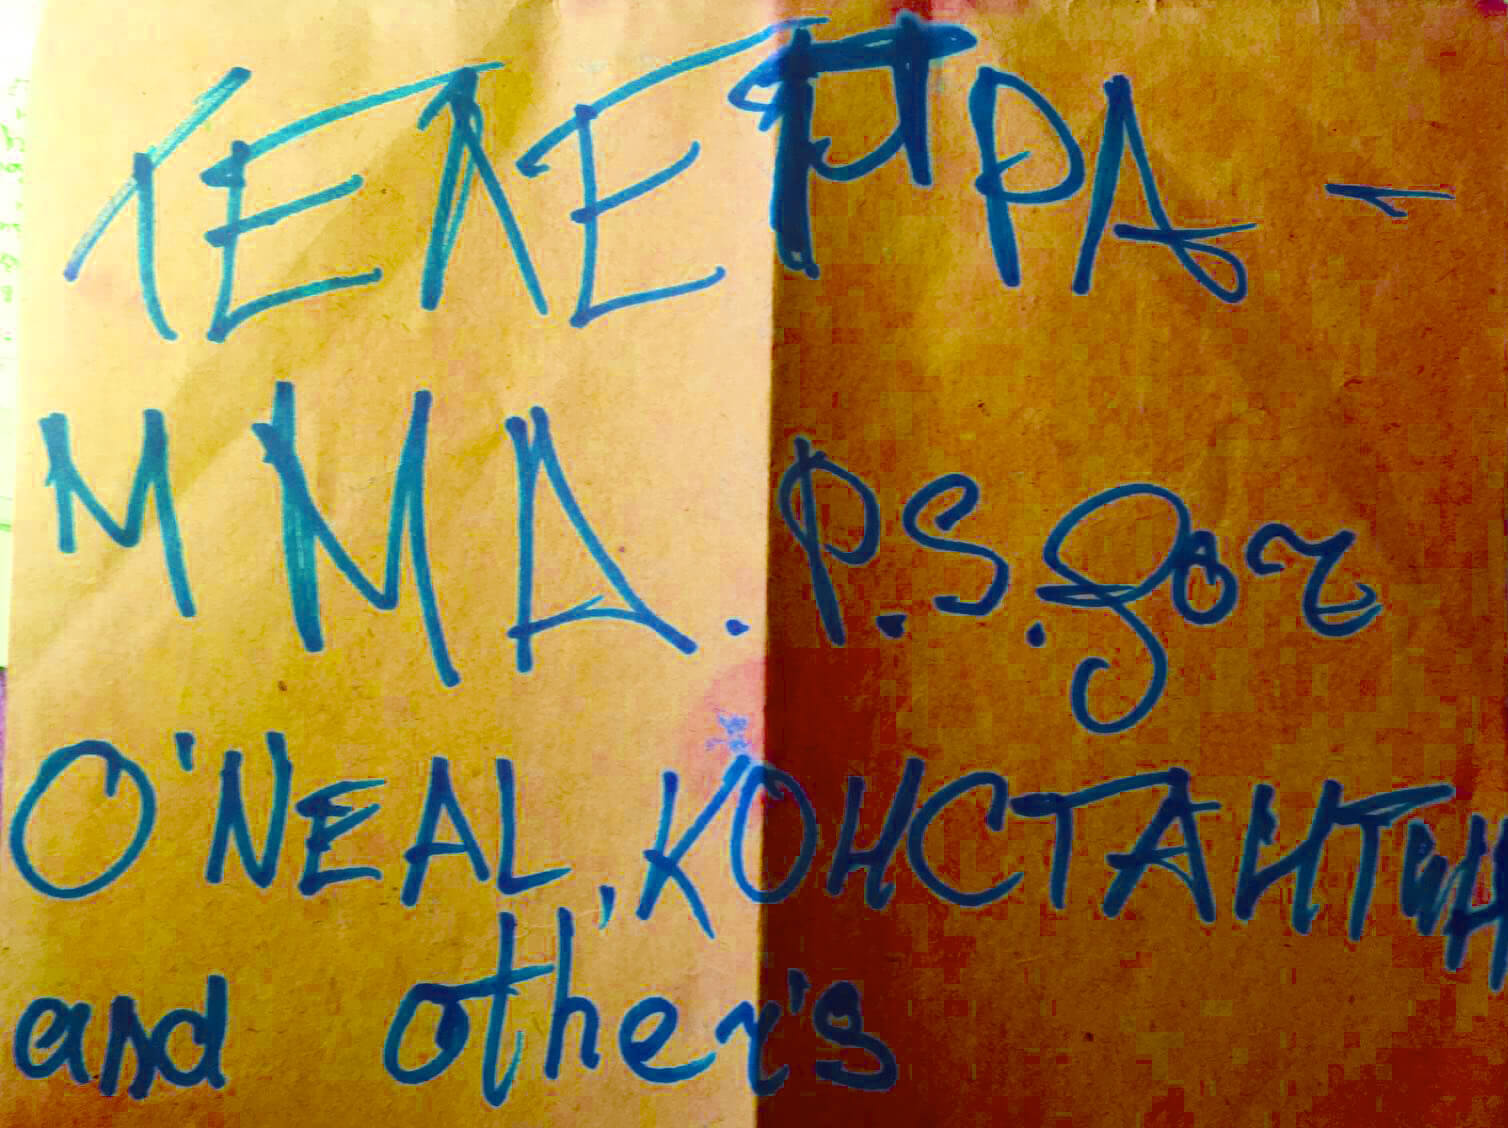 ТЕЛЕГРА-
ММА. P.S. for
O'NEAL, КОНСТАНТИН
and other's